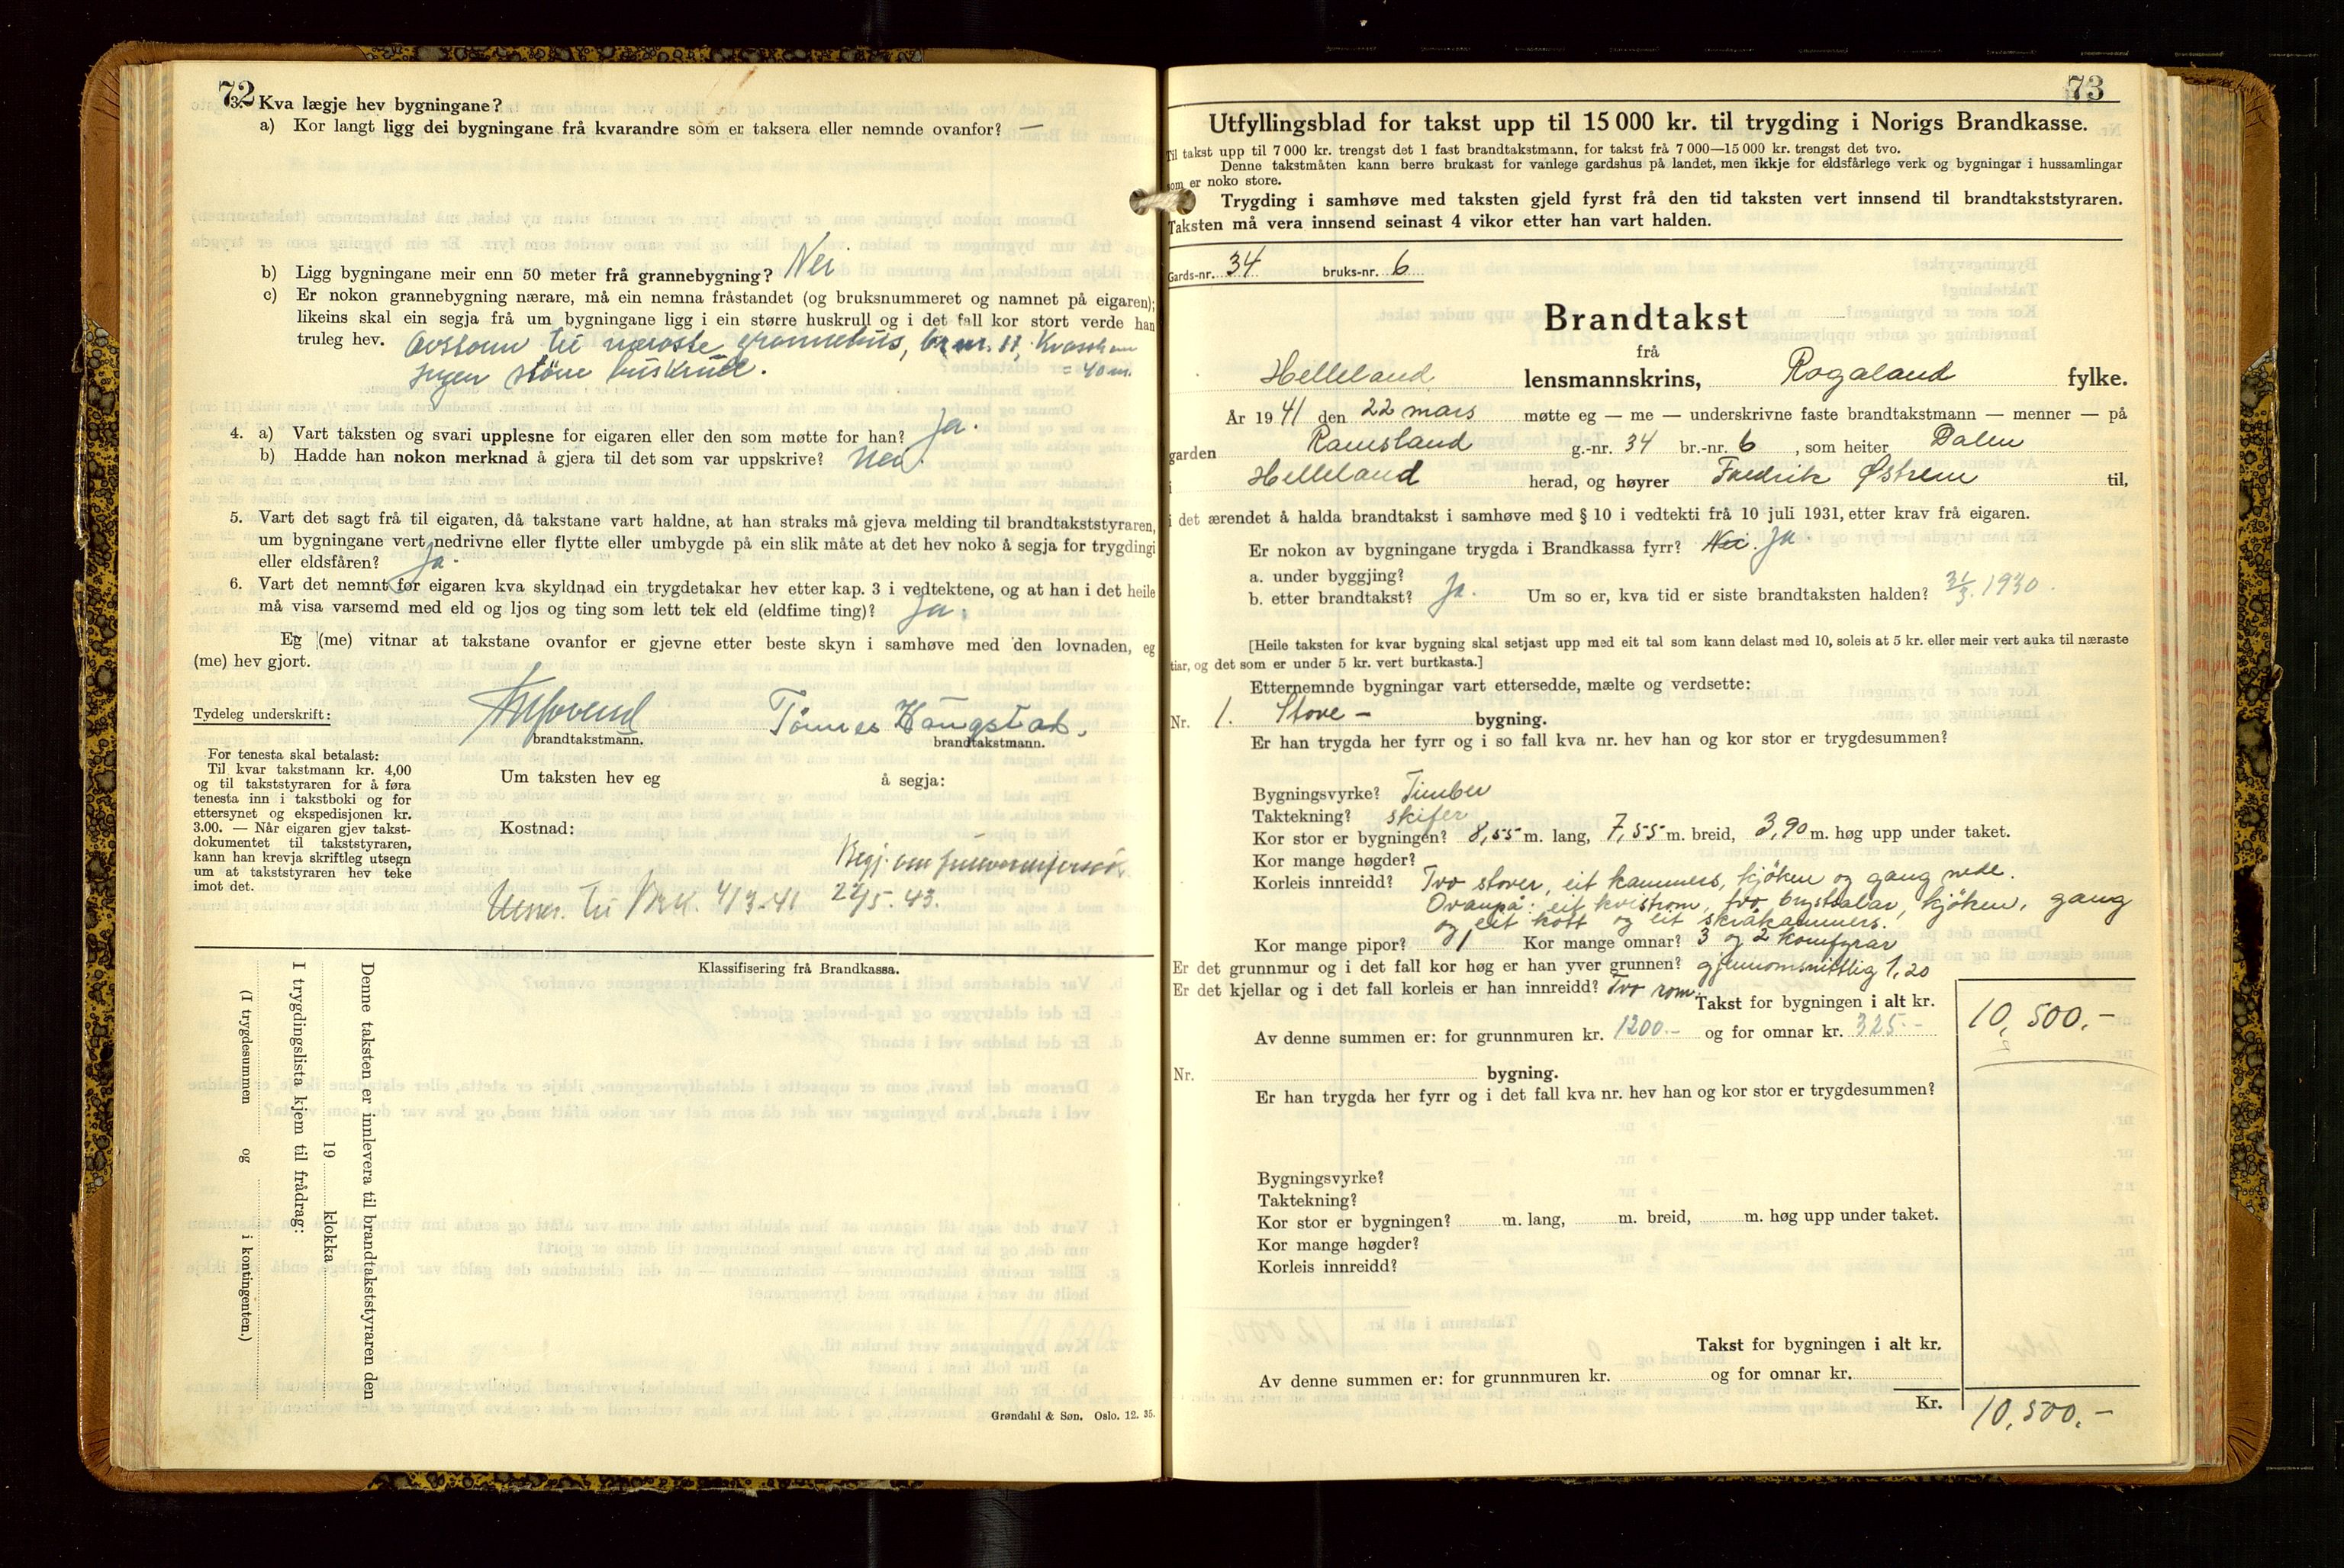 72
3. Kva lægje hev bygningane?
a) Kor langt ligg dei bygningane frå kvarandre som er taksera eller nemnde ovanfor? —
b) Ligg bygningane meir enn 50 meter frå grannebygning? Nei
c) Er nokon grannebygning nærare, må ein nemna fråstandet (og bruksnummeret og namnet på eigaren);
likeins skal ein segja frå um bygningane ligg i ein større huskrull og i det fall kor stort verde han
truleg hev. til næraste grannehus, br. nr.
Ingen større huskrull. = 40 m.
4. a) Vart taksten og svari upplesne for eigaren eller den som møtte for han? Ja.
b) Hadde han nokon merknad å gjera til det som var uppskrive? Nei.
5. Vart det sagt frå til eigaren, då takstane vart haldne, at han straks må gjeva melding til brandtakststyraren,
um bygningane vert nedrivne eller flytte eller umbygde på ein slik måte at det hev noko å segja for trygdingi
eller eldsfåren? Ja.
6. Vart det nemnt for eigaren kva skyldnad ein trygdetakar hev etter kap. 3 i vedtektene, og at han i det heile
må visa varsemd med eld og ljos og ting som lett tek eld (eldfime ting)? Ja.
Eg (me) vitnar at takstane ovanfor er gjevne etter beste skyn i samhøve med den lovnaden, eg
(me) hev gjort.
Tydeleg underskrift: Tønnes Haugstad.
brandtakstmann. brandtakstmann.
For tenesta skal betalast:
Til kvar takstmann kr. 4,00
og til takststyraren for å føra
tenesta inn i takstboki og for
ettersynet og ekspedisjonen kr.
3.00. — Når eigaren gjev takst-
dokumentet til takststyraren,
kann han krevja skriftleg utsegn
um at takststyraren hev teke
imot det.
Um taksten hev eg å segja:
Kostnad:
Begj. om
til Br.K. 4/3-41 22/5-43.
Klassifisering frå Brandkassa.
Denne taksten er innlevera til brandtakststyraren den
19 klokka
I trygdingslista kjem til frådrag:
(I trygdesummen og i kontingenten.)
Grøndahl & Søn. Oslo. 12. 35.
73
Utfyllingsblad for takst upp til 15 000 kr. til trygding i Norigs Brandkasse.
Til takst upp til 7 000 kr. trengst det 1 fast brandtakstmann, for takst frå 7 000—15 000 kr. trengst det tvo.
Denne takstmåten kann berre brukast for vanlege gardshus på landet, men ikkje for eldsfårlege verk og bygningar i hussamlingar
som er noko store.
Trygding i samhøve med taksten gjeld fyrst frå den tid taksten vert innsend til brandtakststyraren.
Taksten må vera innsend seinast 4 vikor etter han vart halden.
Gards-nr. 34 bruks-nr. 6
Brandtakst
frå
Helleland lensmannskrins, Rogaland fylke.
År 1941 den 22 mars møtte eg — me — underskrivne faste brandtakstmann — menner — på
garden Ramsland g.-nr. 34 br.-nr. 6, som heiter Dalen
i Helleland herad, og høyrer Fredrik Østrem til,
i det ærendet å halda brandtakst i samhøve med § 10 i vedtekti frå 10 juli 1931, etter krav frå eigaren.
Er nokon av bygningane trygda i Brandkassa fyrr? Nei. Ja.
a. under byggjing?
b. etter brandtakst? Ja. Um so er, kva tid er siste brandtaksten halden? 31/3. 1930.
[Heile taksten for kvar bygning skal setjast upp med eit tal som kann delast med 10, soleis at 5 kr. eller meir vert auka til næraste
tiar, og det som er under 5 kr. vert burtkasta.]
Etternemnde bygningar vart ettersedde, mælte og verdsette:
Nr. 1. Stove- bygning.
Er han trygda her fyrr og i so fall kva nr. hev han og kor stor er trygdesummen?
Bygningsvyrke? Timber
Taktekning? skifer
Kor stor er bygningen? 8,55 m. lang, 7,55 m. breid, 3,90 m. høg upp under taket.
Kor mange høgder?
Korleis innreidd? Tvo stover, eit kammers, kjøken og gang nede.
Ovanpå: eit kvistrom, tvo brystsalar, kjøken, gang
og eit kott og eit skråkammers.
Kor mange pipor? 1 Kor mange omnar? 3 og 2 komfyrar
Er det grunnmur og i det fall kor høg er han yver grunnen? gjennomsnittlig 1,20
Er det kjellar og i det fall korleis er han innreidd? Tvo rom.
Takst for bygningen i alt kr. 10,500.-
Av denne summen er: for grunnmuren kr. 1200.- og for omnar kr. 325.-
Nr. bygning.
Er han trygda her fyrr og i det fall kva nr. hev han og kor stor er trygdesummen?
Bygningsvyrke?
Taktekning?
Kor stor er bygningen? m. lang, m. breid, m. høg upp under taket.
Kor mange høgder?
Korleis innreidd?
Takst for bygningen i alt kr.
Av denne summen er: for grunnmuren kr. og for omnar kr.
Kr. 10,500.-